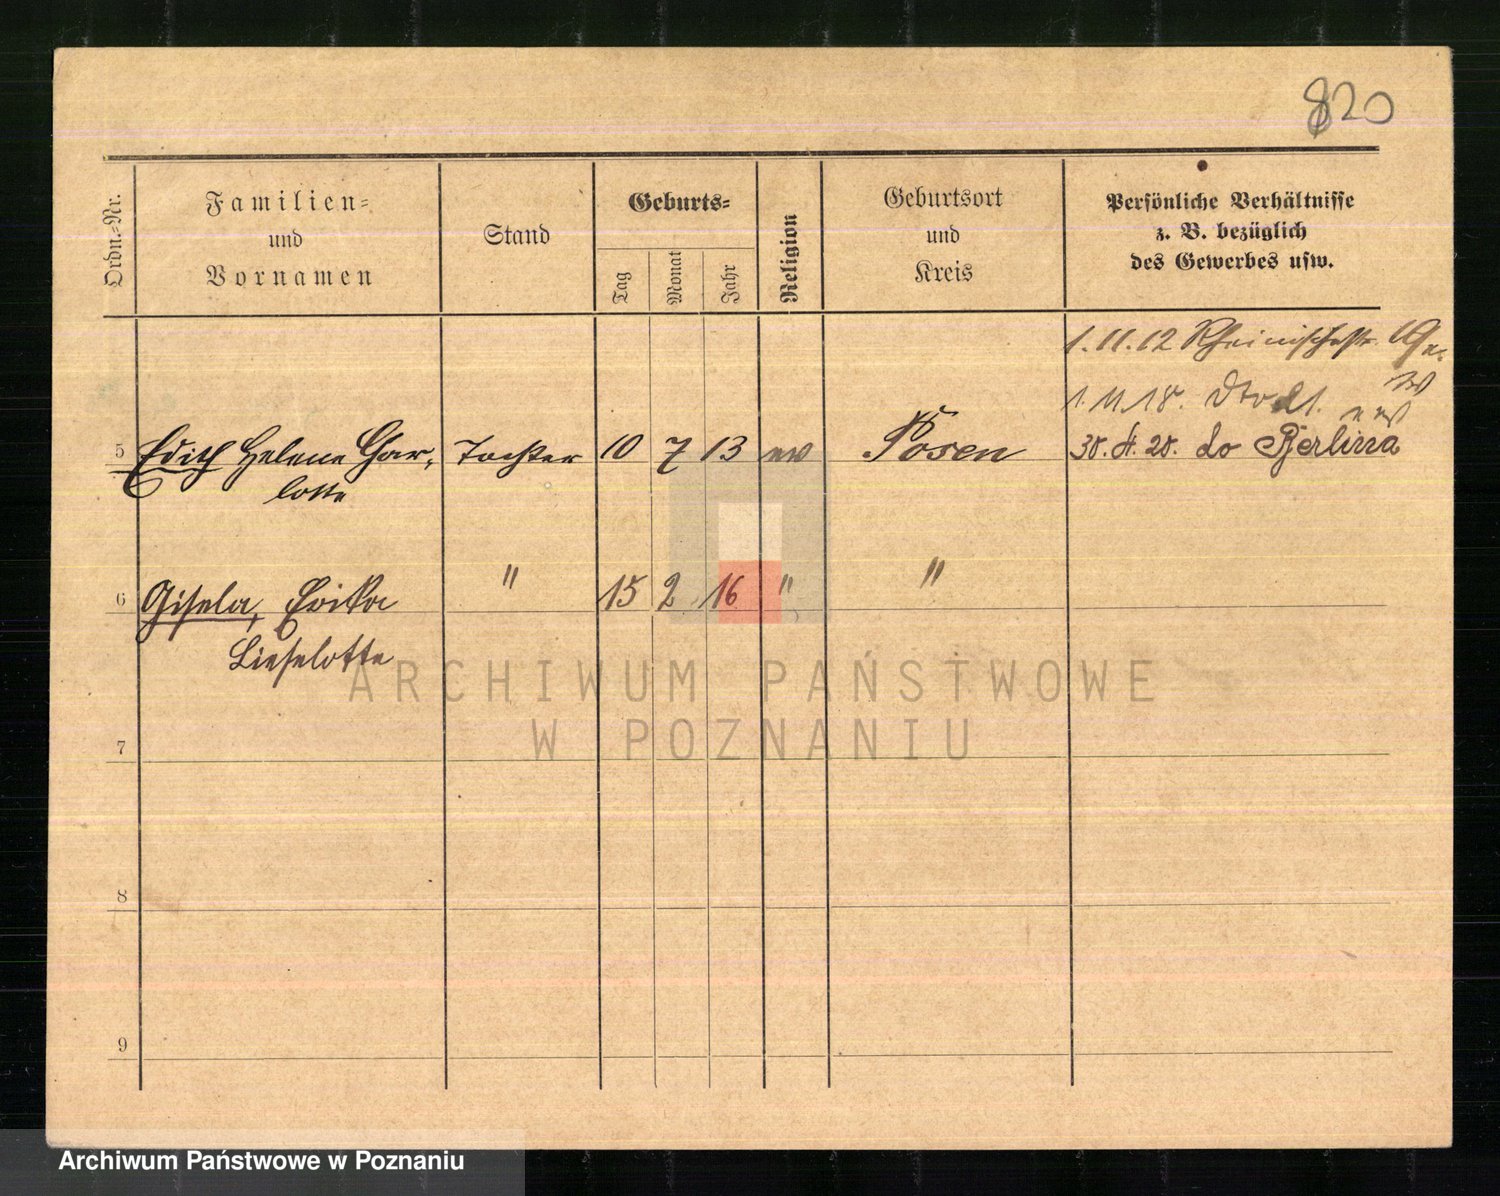 820
Ordn.-Nr.
Familien-
und
Vornamen
Stand
Geburts-
Tag
Monat
Jahr
Religion
Geburtsort
und
Kreis
Persönliche Verhältnisse
z. B. bezüglich
des Gewerbes usw.
1.11.12 Rheinischestr.
1.11.18.
5 Edith Helene Char- Tochter 10 7 13 ev Posen 30.4.20. do
lotte
6 Gisela, Erika " 15 2 16 " "
Lieselotte
7
8
9
ARCHIWUM PAŃSTWOWE
W POZNANIU
Archiwum Państwowe w Poznaniu